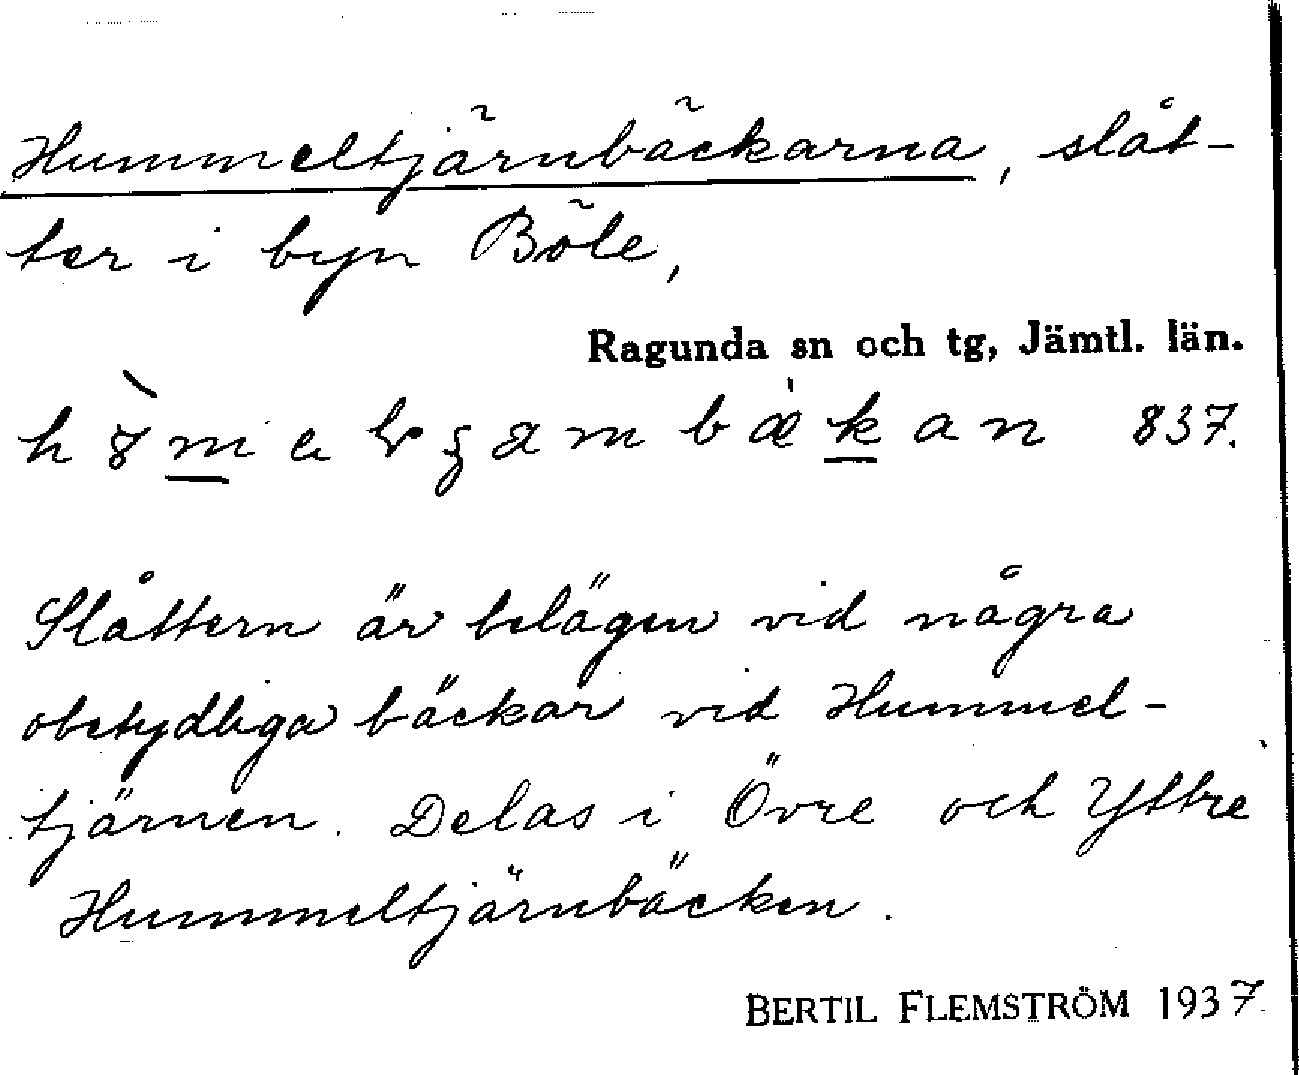 Hummeltjärnbäckarna, slåt-
ter i byn Böle,
Ragunda sn och tg, Jämtl. län.
837.
Slåttern är belägen vid några
obetydliga bäckar vid Hummel-
tjärnen. Delas i Övre och Yttre
Hummeltjärnbäcken.
BERTIL FLEMSTRÖM 1937